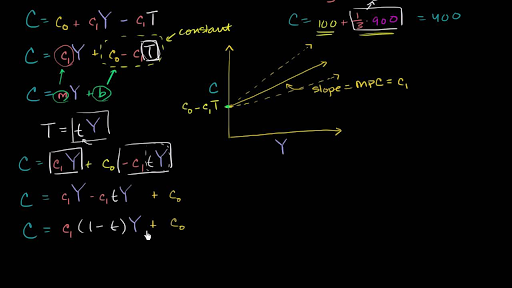 C = c₀ + c₁Y - c₁T
constant
C = c₁Y + c₀ - c₁T
C = mY + b
T = tY
C = c₁Y + c₀ - c₁tY
C = c₁Y - c₁tY + c₀
C = c₁(1-t)Y + c₀
C = 100 + 1/3·900 = 400
C
c₀-c₁T
slope = MPC = c₁
Y